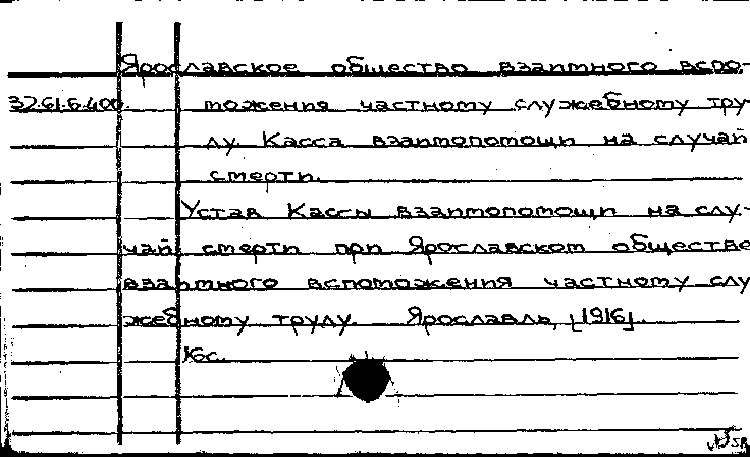 Ярославское общество взаимного вспо-
37.61.6.400. можения частному служебному тру-
ду Касса взаимопомощи на случай
смерти.
Устав Кассы взаимопомощи на слу-
чай смерти при Ярославском обществе
взаимного вспоможения частному слу
жебному труду. Ярославль, [1916].
16с.